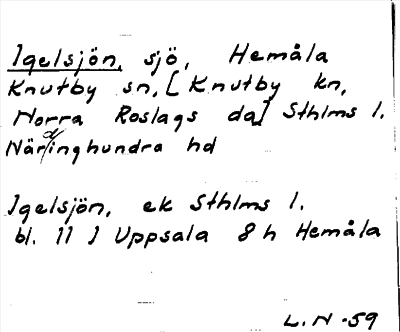 Igelsjön, sjö, Hemåla
Knutby sn, [Knutby kn,
Norra Roslags da] Sthlms l.
Närdinghundra hd
Igelsjön, ek Sthlms l.
bl. 11 I Uppsala 8h Hemåla
L.N -59